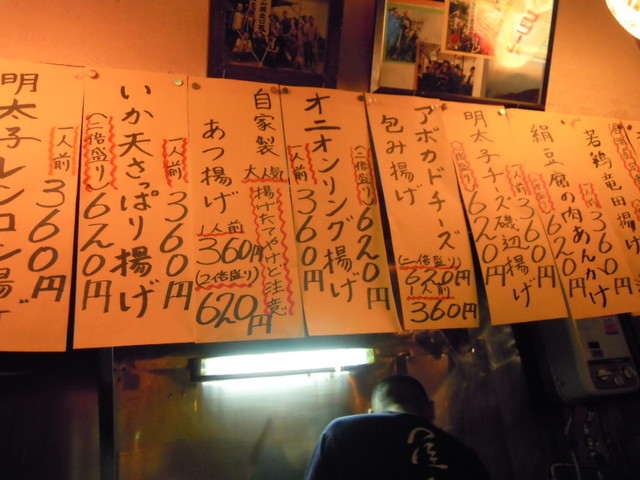 若鶏竜田揚げ
360円
620円
絹豆腐の肉あんかけ
1人前
360円
620円
明太子チーズ磯辺揚げ
360円
620円
アボカドチーズ
包み揚げ
(二倍盛り)
620円
1人前
360円
オニオンリング揚げ
(二倍盛り)
620円
1人前
360円
自家製
あつ揚げ
大人気
揚げたてやけど注意
1人前
360円
(2倍盛り)
620円
いか天さっぱり揚げ
1人前
360円
(二倍盛り)
620円
明太子レンコン揚げ
1人前
360円